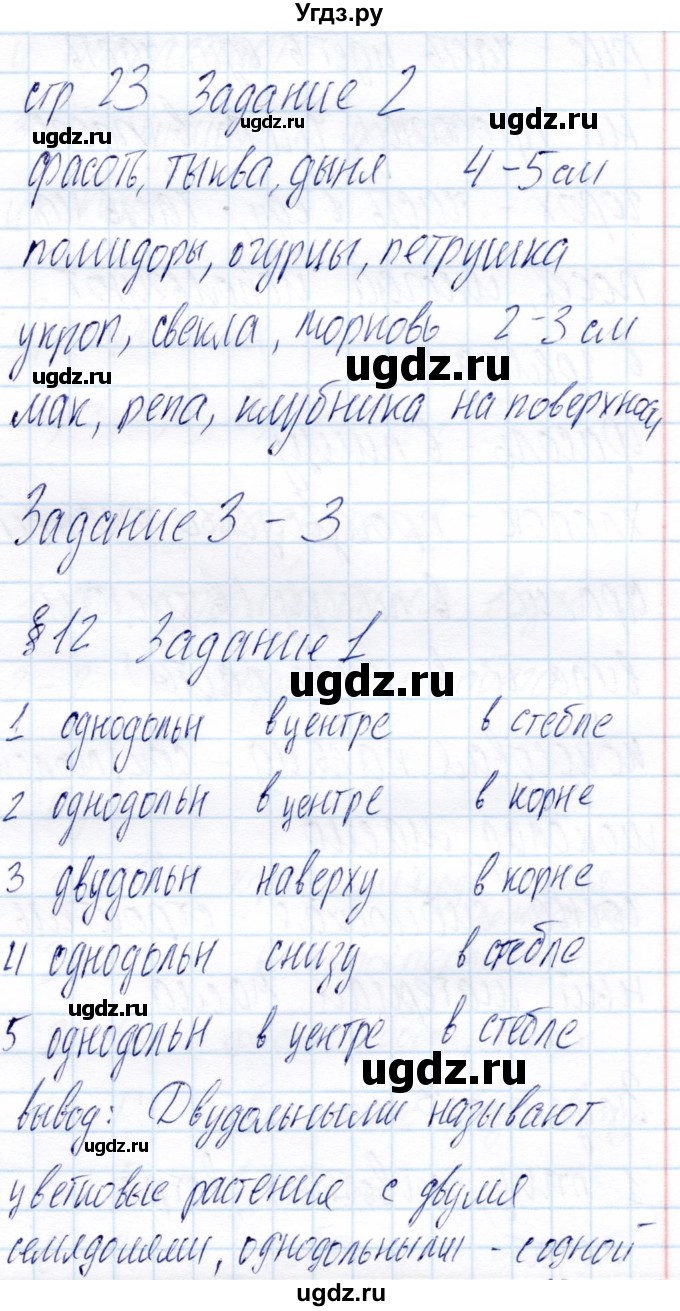 Угдз.ру
стр 23 Задание 2
ugdz.ru ugdz.ru ugdz.ru
фасоль, тыква, дыня 4-5 см
помидоры, огурцы, петрушка
укроп, свекла, морковь 2-3 см
ugdz.ru ugdz.ru
мак, репа, клубника на поверхности
Задание 3 - 3
§12 Задание 1
ugdz.ru
1 однодольн в центре в стебле
2 однодольн в центре в корне
3 двудольн наверху в корне
4 однодольн снизу в стебле
ugdz.ru
5 однодольн в центре в стебле
ugdz.ru
вывод: Двудольными называют
ugdz.ru
цветковые растения с двумя
семядолями, однодольными - с одной
ugdz.ru